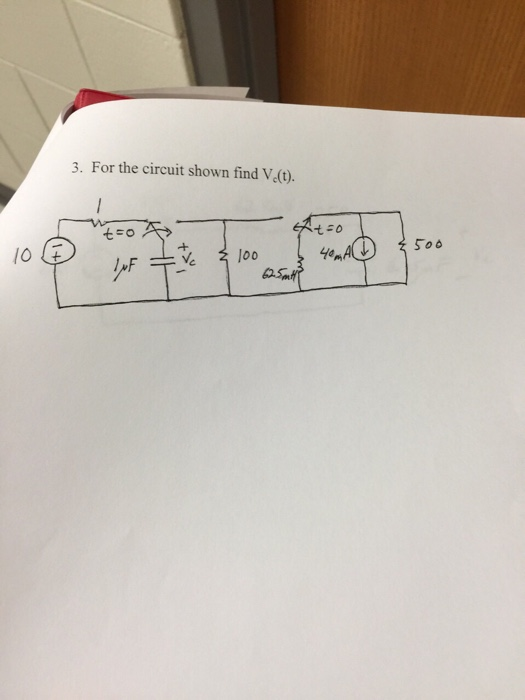 3. For the circuit shown find Vc(t).
1
t=0
10
- +
1μF
+
Vc
-
100
62.5mH
t=0
40mA
500